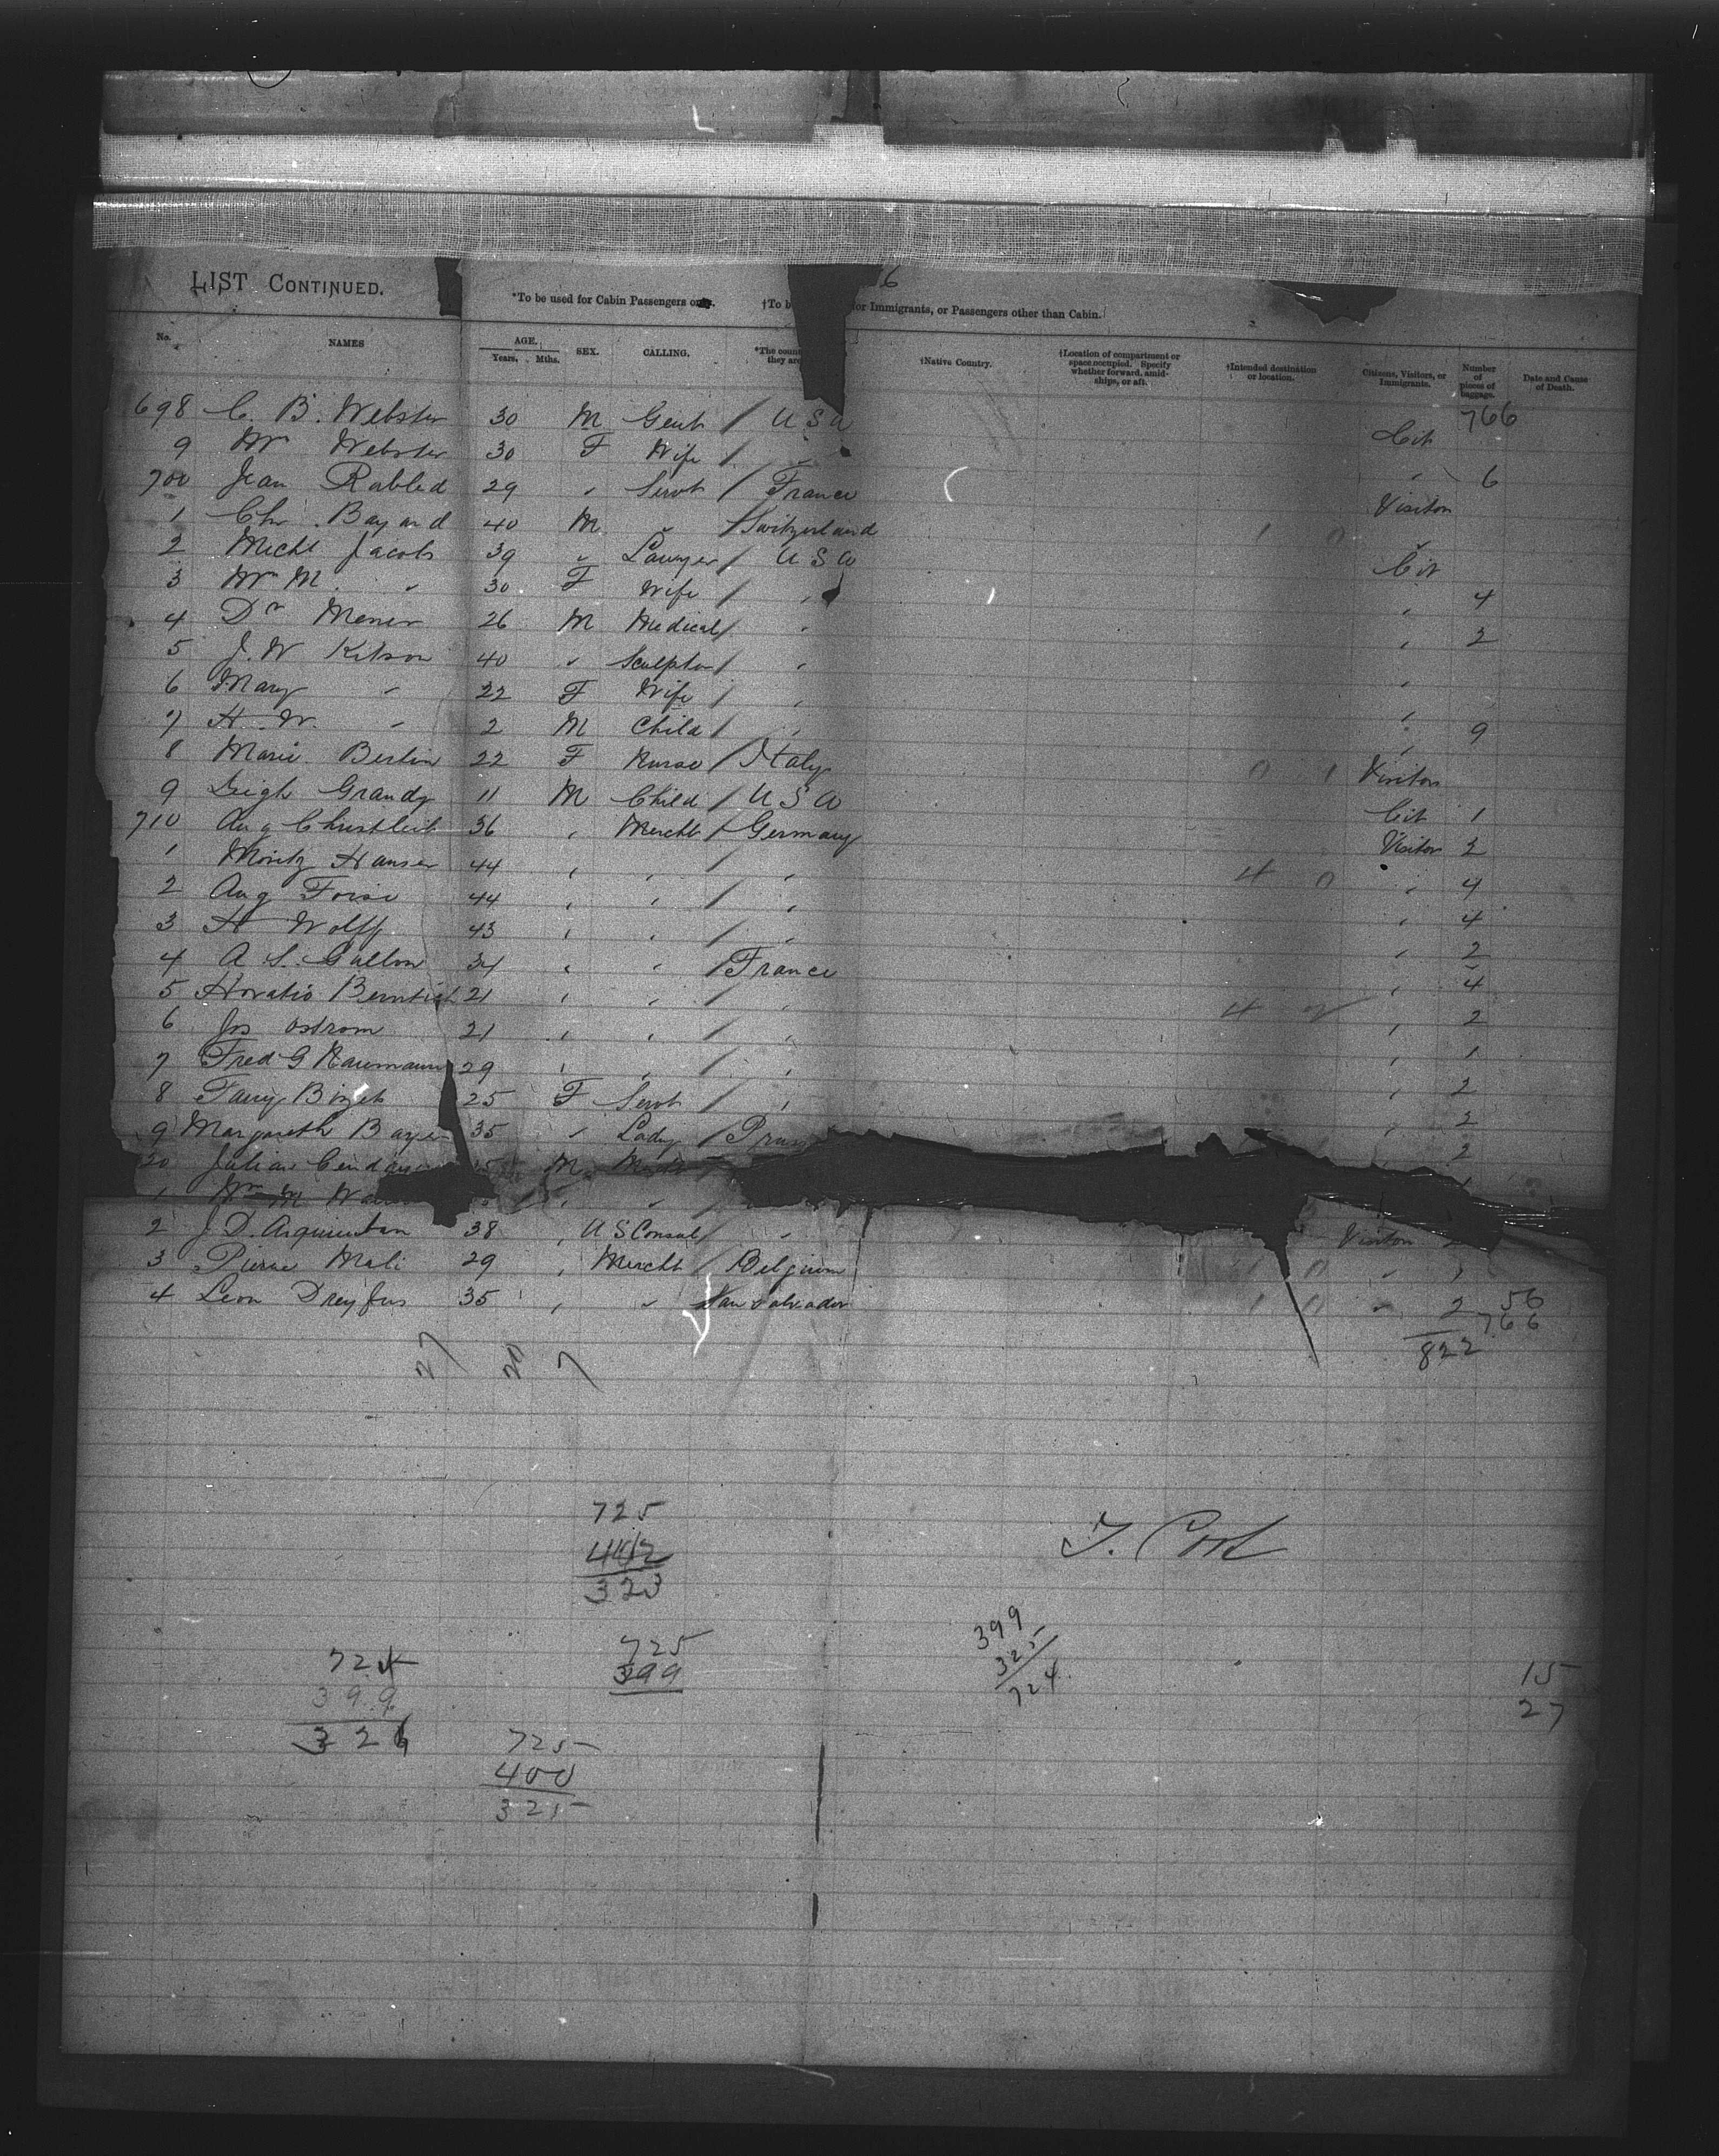 6
LIST CONTINUED.
*To be used for Cabin Passengers only. †To b or Immigrants, or Passengers other than Cabin.
No. NAMES AGE. Years. Mths. SEX. CALLING. *The coun they are †Native Country. †Location of compartment or space occupied. Specify whether forward, amidships, or aft. †Intended destination or location. Citizens, Visitors, or Immigrants. Number of pieces of baggage. Date and Cause of Death.
766
698 C. B. Webster 30 M Gent / USA Cit
9 Mrs Webster 30 F Wife / " " 6
700 Jean Rabled 29 " Servt / France Visitor
1 Chr. Bayard 40 M " / Switzerland 1 0 "
2 Michl Jacobs 39 " Lawyer / USA Cit
3 Mrs M. " 30 F Wife / " " 4
4 Dr 26 M Medical / " " 2
5 J. W Kitson 40 " Sculptor / " "
6 Mary " 22 F Wife / " "
7 H. W. " 2 M Child / " " 9
8 Marie Berlin 22 F Nurse / Italy 0 1 Visitor
9 Leigh Grandy 11 M Child / USA Cit 1
710 Aug Christlieb 36 " Mercht / Germany Visitor 2
1 Moritz Hauser 44 " " / " 4 0 " 4
2 Aug 44 " " / " " 4
3 H Wolff 43 " " / " " 2
4 A S. Gallon 34 " " / France " 4
5 Horatio 21 " " / " 4 " 2
6 Jos Ostrom 21 " " / " " 1
7 Fred G Naumann 29 " " / " " 2
8 Fanny Bizet 25 F Servt / " " 2
9 Margareth Bayer 35 " Lady / Prus " 2
20 Julian M
1 Wm M
2 J. D. 38 " US Consul / " Visitor
3 Pierre Mali 29 " Mercht / Belgium 1 0 " 1
4 Leon Dreyfus 35 " " San Salvador 1 0 " 2 56
766
822
725
402
323
725
399
399
325
724
724
399
326
725
400
325
15
27